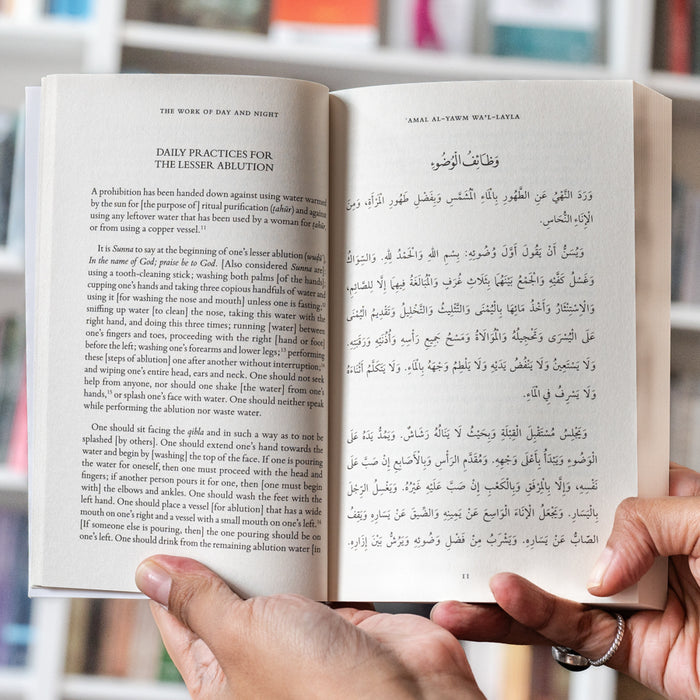 THE WORK OF DAY AND NIGHT
DAILY PRACTICES FOR
THE LESSER ABLUTION
A prohibition has been handed down against using water warmed
by the sun for [the purpose of] ritual purification (ṭahūr) and against
using any leftover water that has been used by a woman for ṭahūr,
or from using a copper vessel.¹¹
It is Sunna to say at the beginning of one's lesser ablution (wuḍūʾ),
In the name of God; praise be to God. [Also considered Sunna are]
using a tooth-cleaning stick; washing both palms [of the hands];
cupping one's hands and taking three copious handfuls of water and
using it [for washing the nose and mouth] unless one is fasting;¹²
sniffing up water [to clean] the nose, taking this water with the
right hand, and doing this three times; running [water] between
one's fingers and toes, proceeding with the right [hand or foot]
before the left; washing one's forearms and lower legs;¹³ performing
these [steps of ablution] one after another without interruption;¹⁴
and wiping one's entire head, ears and neck. One should not seek
help from anyone, nor should one shake [the water] from one's
hands,¹⁵ or splash one's face with water. One should neither speak
while performing the ablution nor waste water.
One should sit facing the qibla and in such a way as to not be
splashed [by others]. One should extend one's hand towards the
water and begin by [washing] the top of the face. If one is pouring
the water for oneself, then one must proceed with the head and
fingers; if another person pours it for one, then [one must begin
with] the elbows and ankles. One should wash the feet with the
left hand. One should place a vessel [for ablution] that has a wide
mouth on one's right and a vessel with a small mouth on one's left.¹⁶
[If someone else is pouring, then] the one pouring should be on
one's left. One should drink from the remaining ablution water [in
ʿAMAL AL-YAWM WA'L-LAYLA
وَظَائِفُ الْوُضُوءِ
وَرَدَ النَّهْيُ عَنِ الطَّهُورِ بِالْمَاءِ الْمُشَمَّسِ وَبِفَضْلِ طَهُورِ الْمَرْأَةِ، وَمِنَ
الْإِنَاءِ النُّحَاسِ.
وَيُسَنُّ أَنْ يَقُولَ أَوَّلَ وُضُوئِهِ: بِسْمِ اللهِ وَالْحَمْدُ لِلهِ. وَالسِّوَاكُ
وَغَسْلُ كَفَّيْهِ وَالْجَمْعُ بَيْنَهُمَا بِثَلَاثِ غُرَفٍ وَالْمُبَالَغَةُ فِيهِمَا إِلَّا لِلصَّائِمِ،
وَالِاسْتِنْثَارُ وَأَخْذُ مَائِهَا بِالْيُمْنَى وَالتَّثْلِيثُ وَالتَّخْلِيلُ وَتَقْدِيمُ الْيُمْنَى
عَلَى الْيُسْرَى وَتَحْجِيلُهُ وَالْمُوَالَاةُ وَمَسْحُ جَمِيعِ رَأْسِهِ وَأُذُنَيْهِ وَرَقَبَتِهِ.
وَلَا يَسْتَعِينُ وَلَا يَنْفُضُ يَدَيْهِ وَلَا يَلْطِمُ وَجْهَهُ بِالْمَاءِ. وَلَا يَتَكَلَّمُ أَثْنَاءَهُ
وَلَا يُسْرِفُ فِي الْمَاءِ.
وَيَجْلِسُ مُسْتَقْبِلَ الْقِبْلَةِ وَبِحَيْثُ لَا يَنَالُهُ رَشَاشٌ. وَيَمُدُّ يَدَهُ عَلَى
الْوَضُوءِ وَيَبْدَأُ بِأَعْلَى وَجْهِهِ. وَمُقَدَّمِ الرَّأْسِ وَبِالْأَصَابِعِ إِنْ صَبَّ عَلَى
نَفْسِهِ، وَإِلَّا بِالْمِرْفَقِ وَبِالْكَعْبِ إِنْ صَبَّ عَلَيْهِ غَيْرُهُ. وَيَغْسِلُ الرِّجْلَ
بِالْيَسَارِ. وَيَجْعَلُ الْإِنَاءَ الْوَاسِعَ عَنْ يَمِينِهِ وَالضَّيِّقَ عَنْ يَسَارِهِ وَيَقِفُ
الصَّابُّ عَنْ يَسَارِهِ. وَيَشْرَبُ مِنْ فَضْلِ وَضُوئِهِ وَيَرُشُّ بَيْنَ إِزَارِهِ.
11